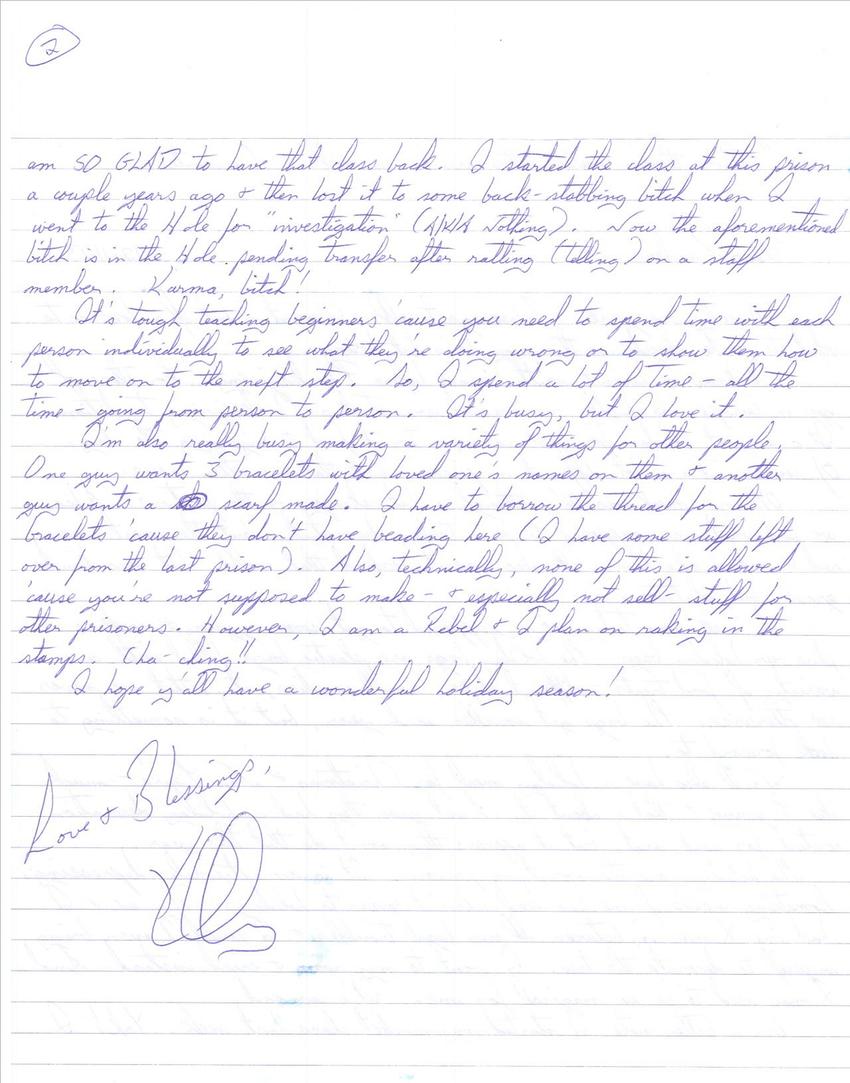 2
am SO GLAD to have that class back. I started the class at this prison
a couple years ago & then lost it to some back-stabbing bitch when I
went to the Hole for "investigation" (A/K/A Nothing). Now the aforementioned
bitch is in the Hole pending transfer after ratting (telling) on a staff
member. Karma, bitch!
It's tough teaching beginners 'cause you need to spend time with each
person individually to see what they're doing wrong or to show them how
to move on to the next step. So, I spend a lot of time - all the
time - going from person to person. It's busy, but I love it.
I'm also really busy making a variety of things for other people.
One guy wants 3 bracelets with loved one's names on them & another
guy wants a scarf made. I have to borrow the thread for the
bracelets 'cause they don't have beading here (I have some stuff left
over from the last prison). Also, technically, none of this is allowed
'cause you're not supposed to make - & especially not sell - stuff for
other prisoners. However, I am a Rebel & I plan on raking in the
stamps. Cha-ching!!
I hope y'all have a wonderful holiday season!
Love & Blessings,